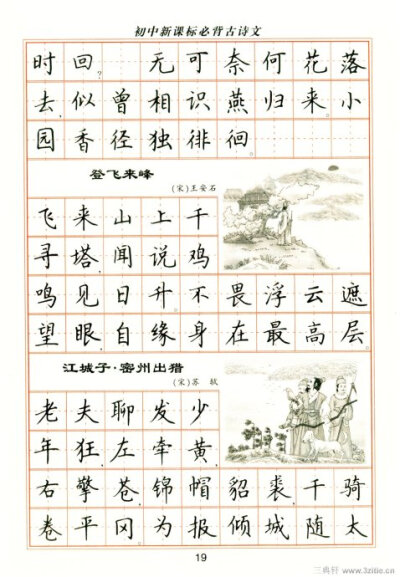 初中新课标必背古诗文
时回?　无可奈何花落
去,似曾相识燕归来。小
园香径独徘徊。
登飞来峰
(宋)王安石
飞来山上千
寻塔,闻说鸡
鸣见日升。不畏浮云遮
望眼,自缘身在最高层。
江城子·密州出猎
(宋)苏 轼
老夫聊发少
年狂,左牵黄,
右擎苍,锦帽貂裘,千骑
卷平冈。为报倾城随太
19
三典轩 www.3zitie.cn